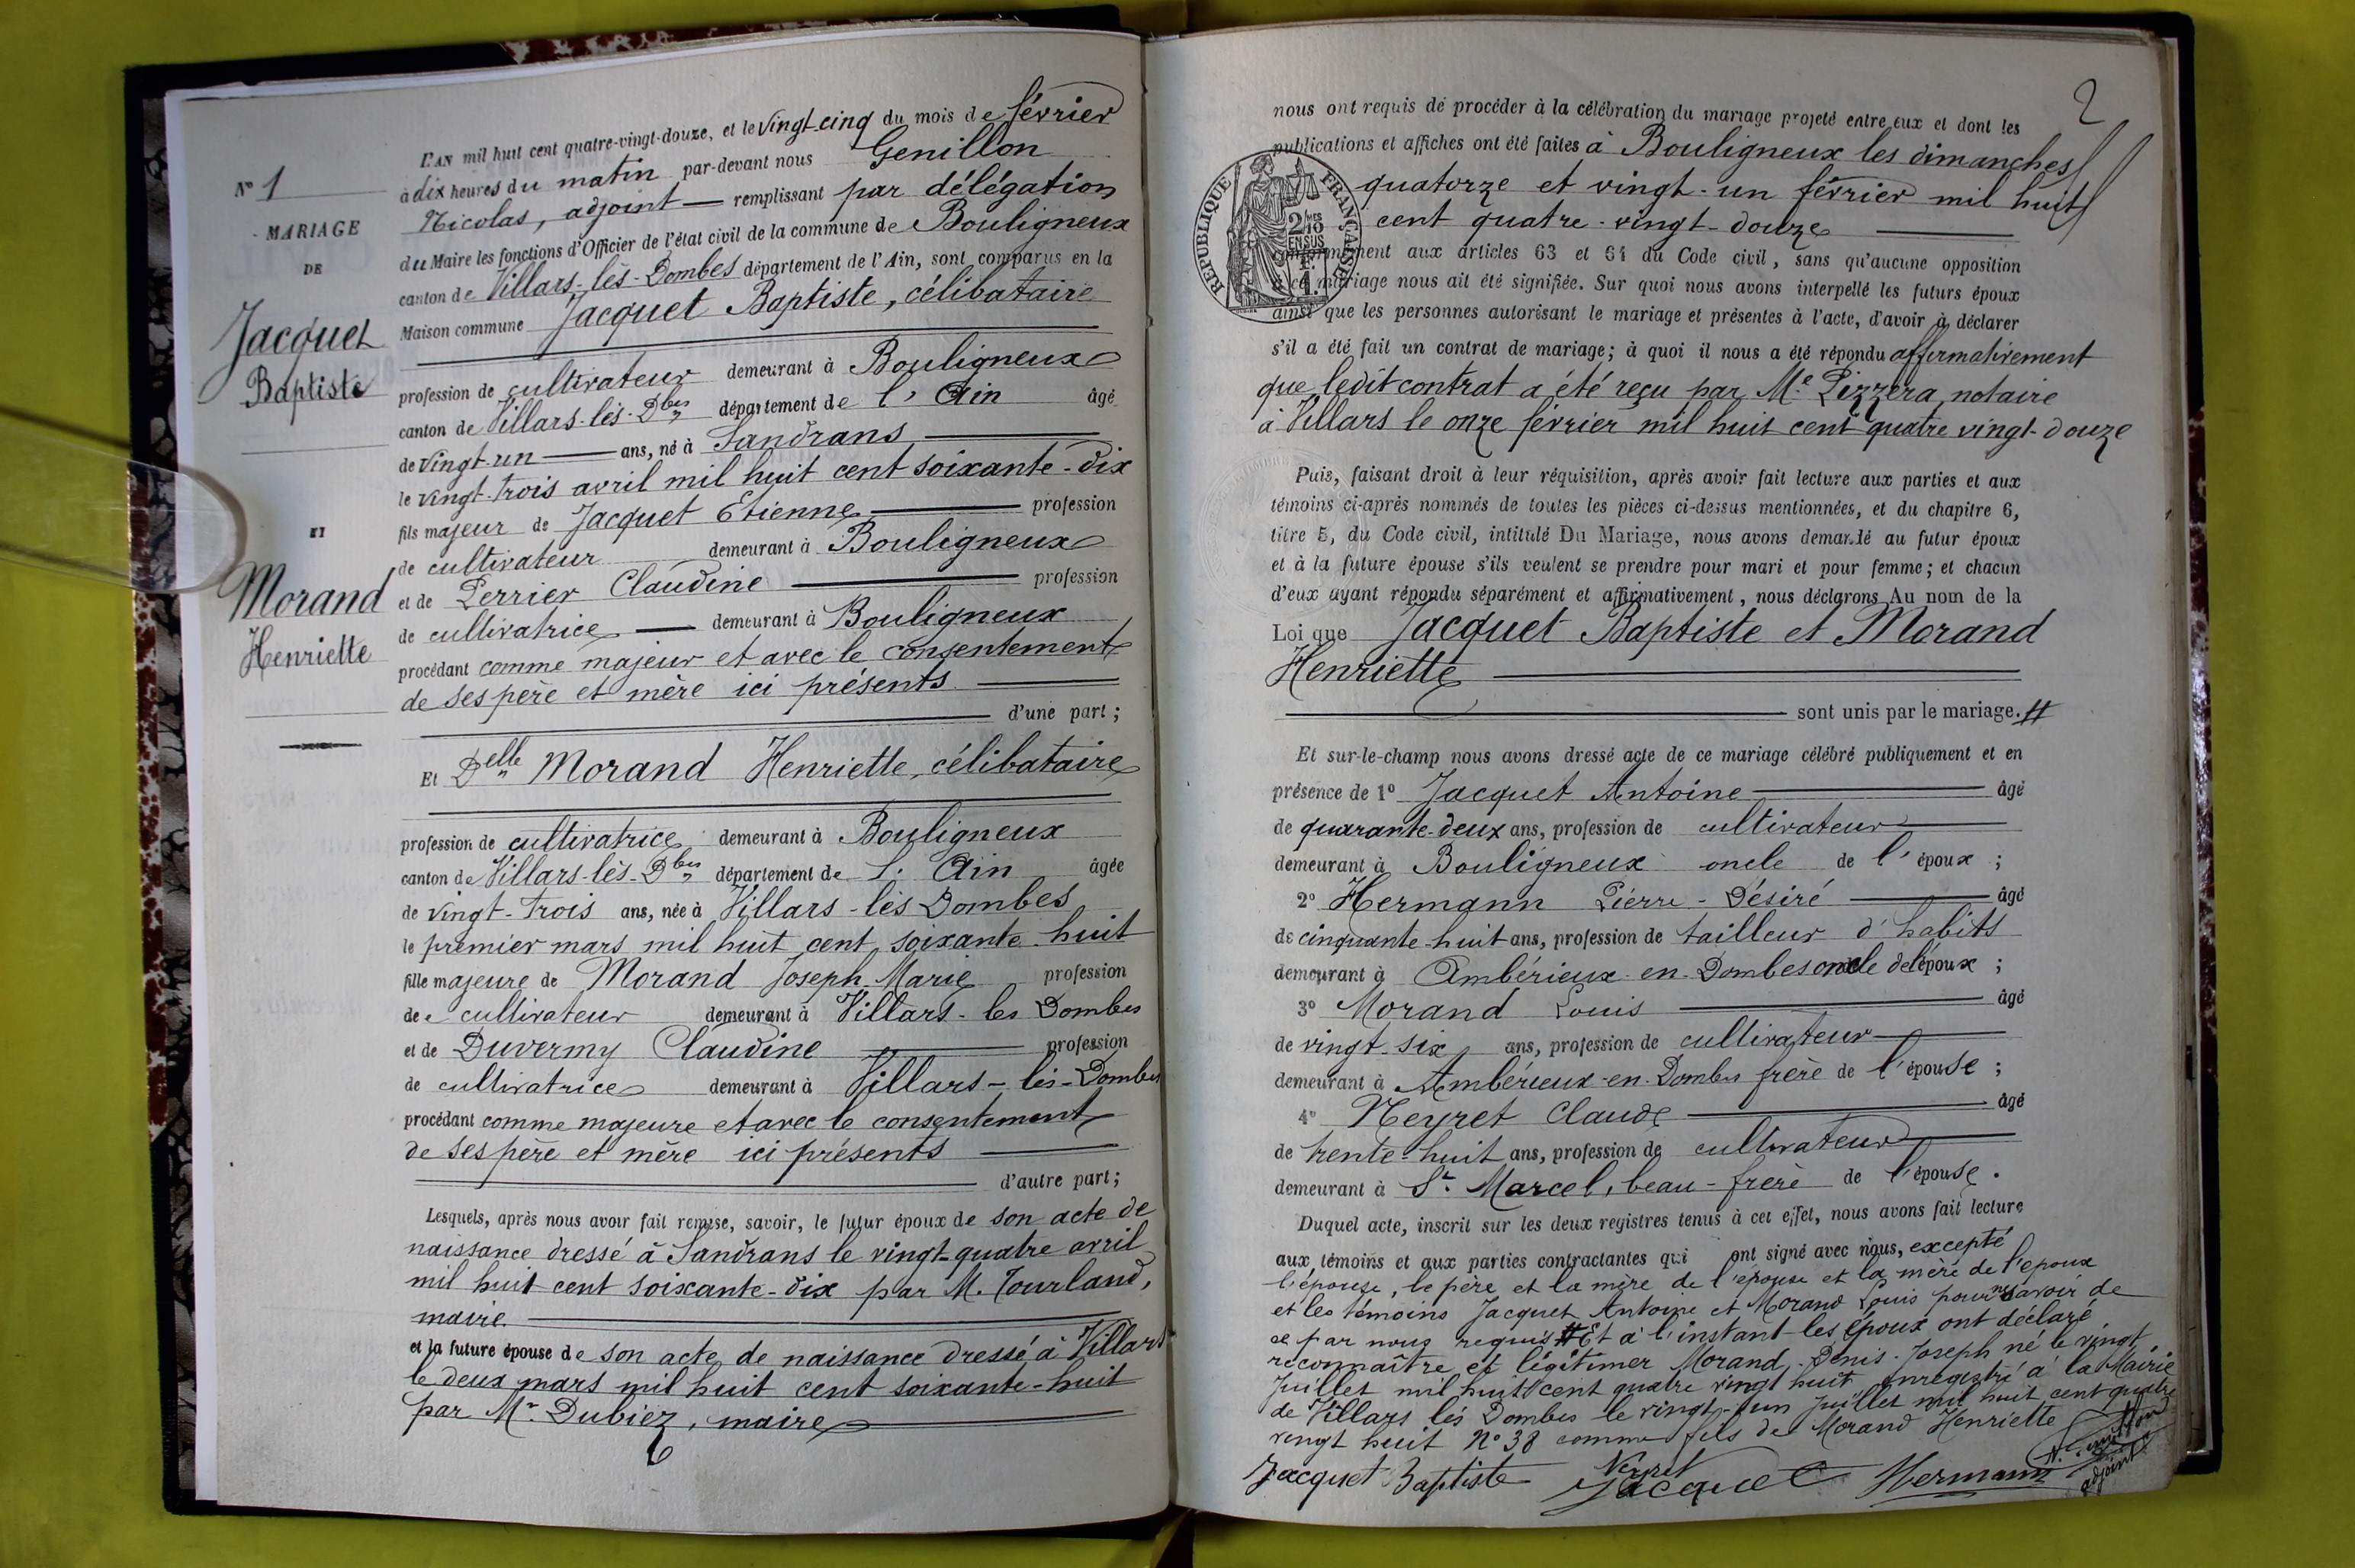 L'AN mil huit cent quatre-vingt-douze, et le vingt-cinq du mois de février
à dix heures du matin par-devant nous Genillon
Nicolas, adjoint — remplissant par délégation
du Maire les fonctions d'Officier de l'état civil de la commune de Bouligneux
canton de Villars-lès-Dombes département de l'Ain, sont comparus en la
Maison commune Jacquet Baptiste, célibataire
profession de cultivateur demeurant à Bouligneux
canton de Villars-lès-Dbes département de l'Ain âgé
de vingt-un — ans, né à Sandrans
le vingt-trois avril mil huit cent soixante-dix
fils majeur de Jacquet Etienne — profession
de cultivateur demeurant à Bouligneux
et de Perrier Claudine — profession
de cultivatrice — demeurant à Bouligneux
procédant comme majeur et avec le consentement
de ses père et mère ici présents
d'une part ;
Et Delle Morand Henriette, célibataire
profession de cultivatrice demeurant à Bouligneux
canton de Villars-lès-Dbes département de l'Ain âgée
de vingt-trois ans, née à Villars-lès Dombes
le premier mars mil huit cent soixante-huit
fille majeure de Morand Joseph Marie profession
de cultivateur demeurant à Villars-les Dombes
et de Duvermy Claudine — profession
de cultivatrice demeurant à Villars-lès-Dombes
procédant comme majeure et avec le consentement
de ses père et mère ici présents
d'autre part ;
Lesquels, après nous avoir fait remise, savoir, le futur époux de son acte de
naissance dressé à Sandrans le vingt-quatre avril
mil huit cent soixante-dix par M. Tourland,
maire.
et la future épouse de son acte de naissance dressé à Villars
le deux mars mil huit cent soixante-huit
par Mr Dubiez, maire
N° 1
MARIAGE
DE
Jacquet
Baptiste
ET
Morand
Henriette
2
nous ont requis de procéder à la célébration du mariage projeté entre eux et dont les
publications et affiches ont été faites à Bouligneux les dimanches
quatorze et vingt-un février mil huit
cent quatre-vingt-douze
conformément aux articles 63 et 64 du Code civil, sans qu'aucune opposition
à ce mariage nous ait été signifiée. Sur quoi nous avons interpellé les futurs époux
ainsi que les personnes autorisant le mariage et présentes à l'acte, d'avoir à déclarer
s'il a été fait un contrat de mariage ; à quoi il nous a été répondu affirmativement
que ledit contrat a été reçu par Me Pizzera, notaire
à Villars le onze février mil huit cent quatre vingt-douze
RÉPUBLIQUE FRANÇAISE
2/10mes
EN SUS
Puis, faisant droit à leur réquisition, après avoir fait lecture aux parties et aux
témoins ci-après nommés de toutes les pièces ci-dessus mentionnées, et du chapitre 6,
titre 5, du Code civil, intitulé Du Mariage, nous avons demandé au futur époux
et à la future épouse s'ils veulent se prendre pour mari et pour femme ; et chacun
d'eux ayant répondu séparément et affirmativement, nous déclarons Au nom de la
Loi que Jacquet Baptiste et Morand
Henriette
sont unis par le mariage. #
Et sur-le-champ nous avons dressé acte de ce mariage célébré publiquement et en
présence de 1° Jacquet Antoine — âgé
de quarante-deux ans, profession de cultivateur
demeurant à Bouligneux oncle de l'époux ;
2° Hermann Pierre-Désiré — âgé
de cinquante-huit ans, profession de tailleur d'habits
demeurant à Ambérieux-en-Dombes oncle de l'époux ;
3° Morand Louis — âgé
de vingt-six ans, profession de cultivateur
demeurant à Ambérieux-en-Dombes frère de l'épouse ;
4° Neyret Claude — âgé
de trente-huit ans, profession de cultivateur
demeurant à St. Marcel, beau-frère de l'épouse.
Duquel acte, inscrit sur les deux registres tenus à cet effet, nous avons fait lecture
aux témoins et aux parties contractantes qui ont signé avec nous, excepté
l'épouse, le père et la mère de l'épouse et la mère de l'époux
et les témoins Jacquet Antoine et Morand Louis pour ne savoir de
ce par nous requis # Et à l'instant les époux ont déclaré
reconnaître et légitimer Morand Denis-Joseph né le vingt
Juillet mil huit cent quatre vingt huit enregistré à la Mairie
de Villars lès Dombes le vingt-un Juillet mil huit cent quatre
vingt huit N° 38 comme fils de Morand Henriette
Jacquet Baptiste Neyret Jacquet Hermann
adjoint